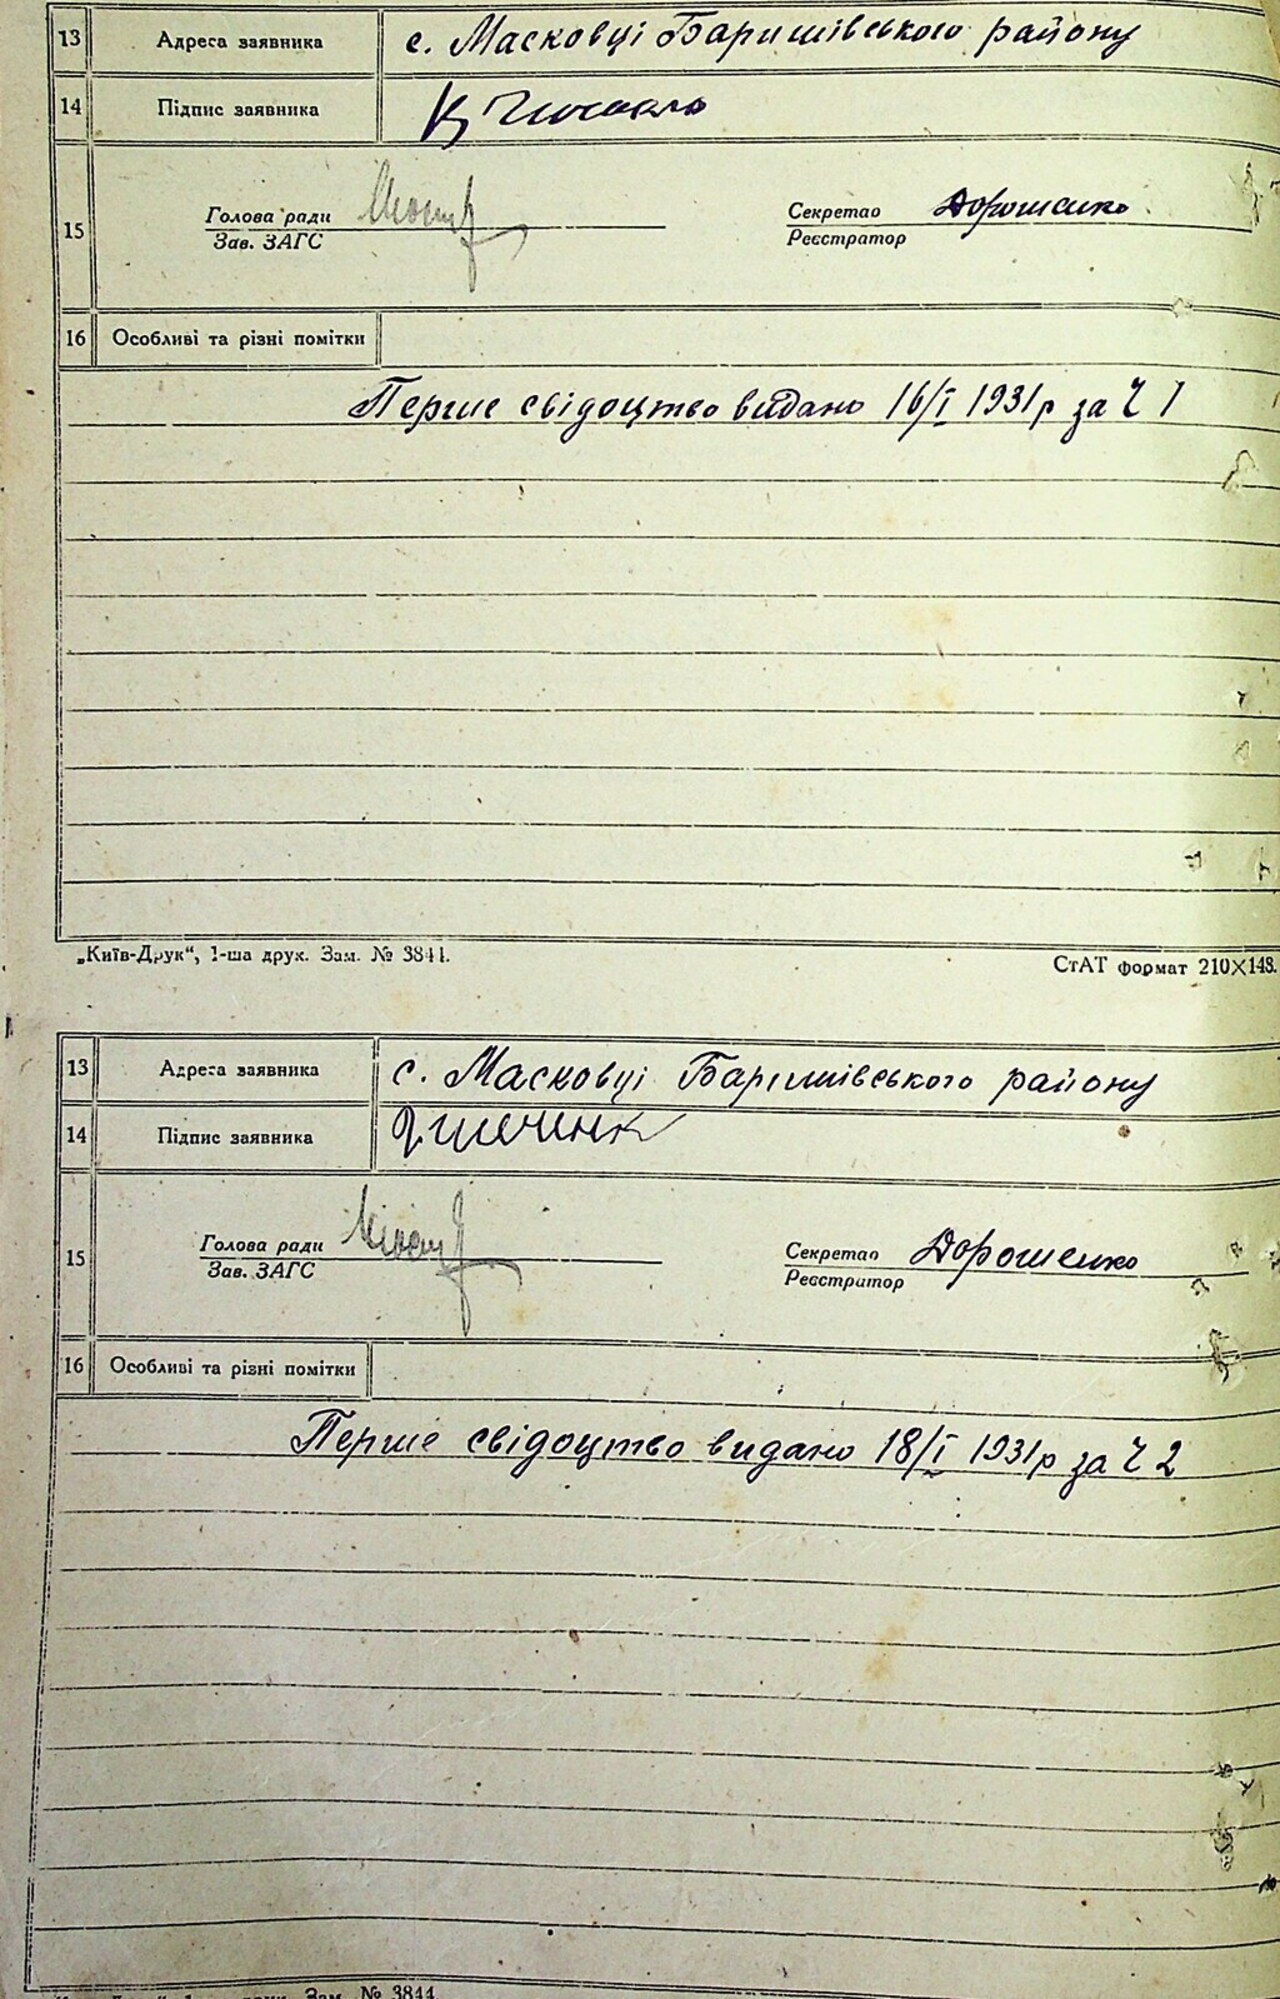 13 Адреса заявника с. Масковці Баришівського району
14 Підпис заявника
Голова ради Секретар Дорошенко
15 Зав. ЗАГС Реєстратор
16 Особливі та різні помітки
Перше свідоцтво видано 16/I 1931 р за Ч 1
„Київ-Друк“, 1-ша друк. Зам. № 3844. СтАТ формат 210×148.
13 Адреса заявника с. Масковці Баришівського району
14 Підпис заявника
Голова ради Секретар Дорошенко
15 Зав. ЗАГС Реєстратор
16 Особливі та різні помітки
Перше свідоцтво видано 18/I 1931 р за Ч 2
Зам. № 3844.